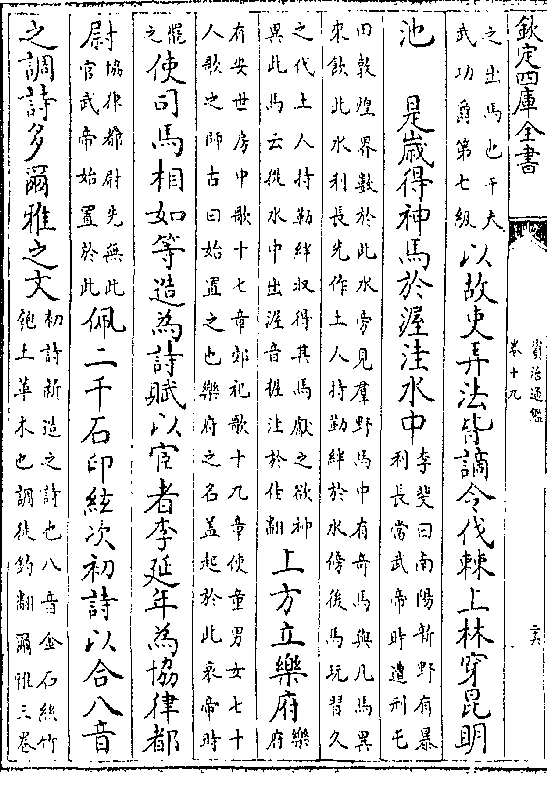 欽定四庫全書
資治通鑑
卷十九
二六
之出馬也千夫武功爵第七級以故吏弄法皆謫令伐棘上林穿昆明
池　是歲得神馬於渥洼水中李斐曰南陽新野有暴利長當武帝時遭刑屯
田敦煌界數於此水旁見羣野馬中有奇馬與凡馬異來飲此水利長先作土人持勒絆於水傍後馬玩習久
之代土人持勒絆收得其馬獻之欲神異此馬云從水中出渥音握洼於佳翻上方立樂府樂府
有安世房中歌十七章郊祀歌十九章使童男女七十人歌之師古曰始置之也樂府之名蓋起於此哀帝時
罷之使司馬相如等造為詩賦以宦者李延年為協律都
尉協律都尉先無此官武帝始置於此佩二千石印絃次初詩以合八音
之調詩多爾雅之文初詩新造之詩也八音金石絲竹匏土革木也調徒釣翻爾雅三卷